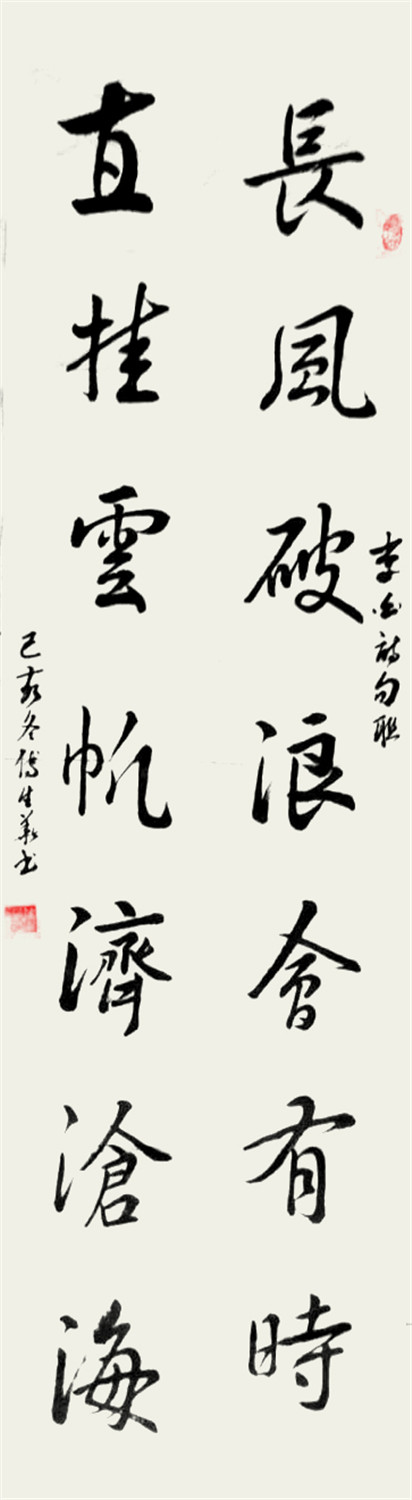 長風破浪會有時
李白詩句联
直挂雲帆濟滄海
己亥冬傅生義书